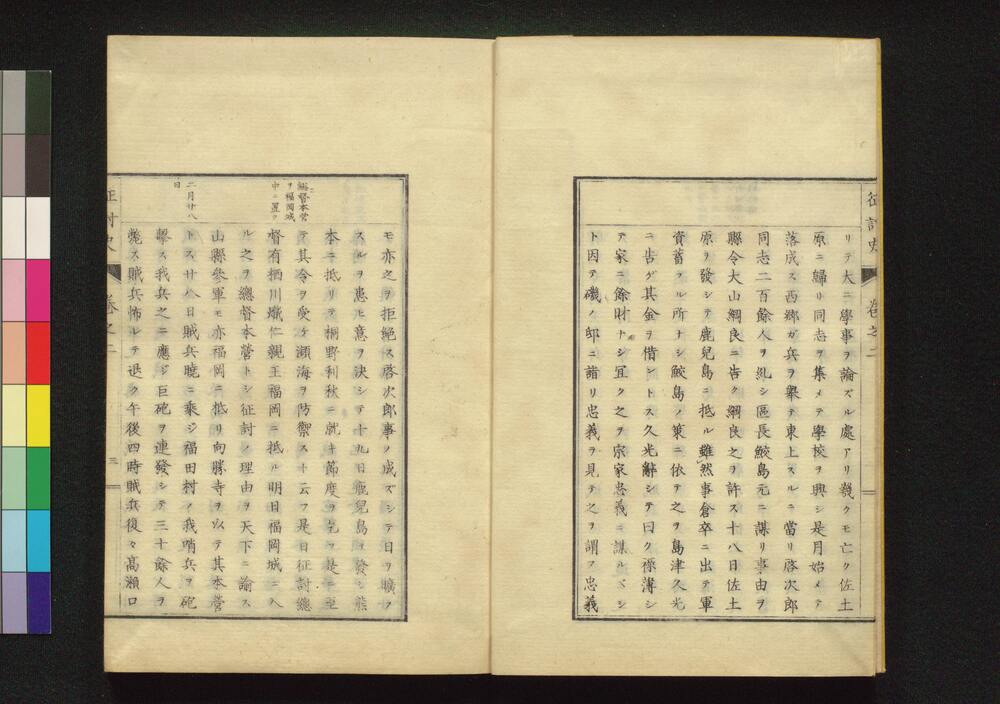 征討史 卷之二
リテ大ニ學事ヲ論ズル處アリ幾クモ亡ク佐土
原ニ歸リ同志ヲ集メテ學校ヲ興シ是月始メテ
落成ス西郷ガ兵ヲ擧テ東上スルニ當リ啓次郎
同志二百餘人ヲ糺シ區長鮫島元ニ謀リ事由ヲ
縣令大山綱良ニ告ク綱良之ヲ許ス十八日佐土
原ヲ發シテ鹿兒島ニ抵ル雖然事倉卒ニ出テ軍
資蓄フル所ナシ鮫島ノ策ニ依テ之ヲ島津久光
ニ告グ其金ヲ借ントス久光辭シテ曰ク祿薄シ
テ家ニ餘財ナシ宜ク之ヲ宗家忠義ニ謀ルベシ
ト因テ磯ノ邸ニ詣リ忠義ヲ見テ之ヲ謂フ忠義
モ亦之ヲ拒絶ス啓次郎事ノ成ズシテ日ヲ曠フ
スルヲ患ヒ意ヲ決シテ十九日鹿兒島ヲ發シ熊
本ニ抵リテ桐野利秋ニ就キ節度ヲ乞フ是ニ至
總督本營
ヲ福岡城
中ニ置ク
テ其令ヲ受ケ瀕海ヲ防禦スト云フ是日征討總
督有栖川熾仁親王福岡ニ抵ル明日福岡城ニ入
ル之ヲ總督本營トシ征討ノ理由ヲ天下ニ諭ス
山縣參軍モ亦福岡ニ抵リ向勝寺ヲ以テ其本營
二月廿八
日
トス廿八日賊兵曉ニ乘ジ福田村ノ我哨兵ヲ砲
擊ス我兵之ニ應ジ巨砲ヲ連發シテ三十餘人ヲ
斃ス賊兵怖レテ退ク午後四時賊兵復々高瀬口
征討史 卷之二 三